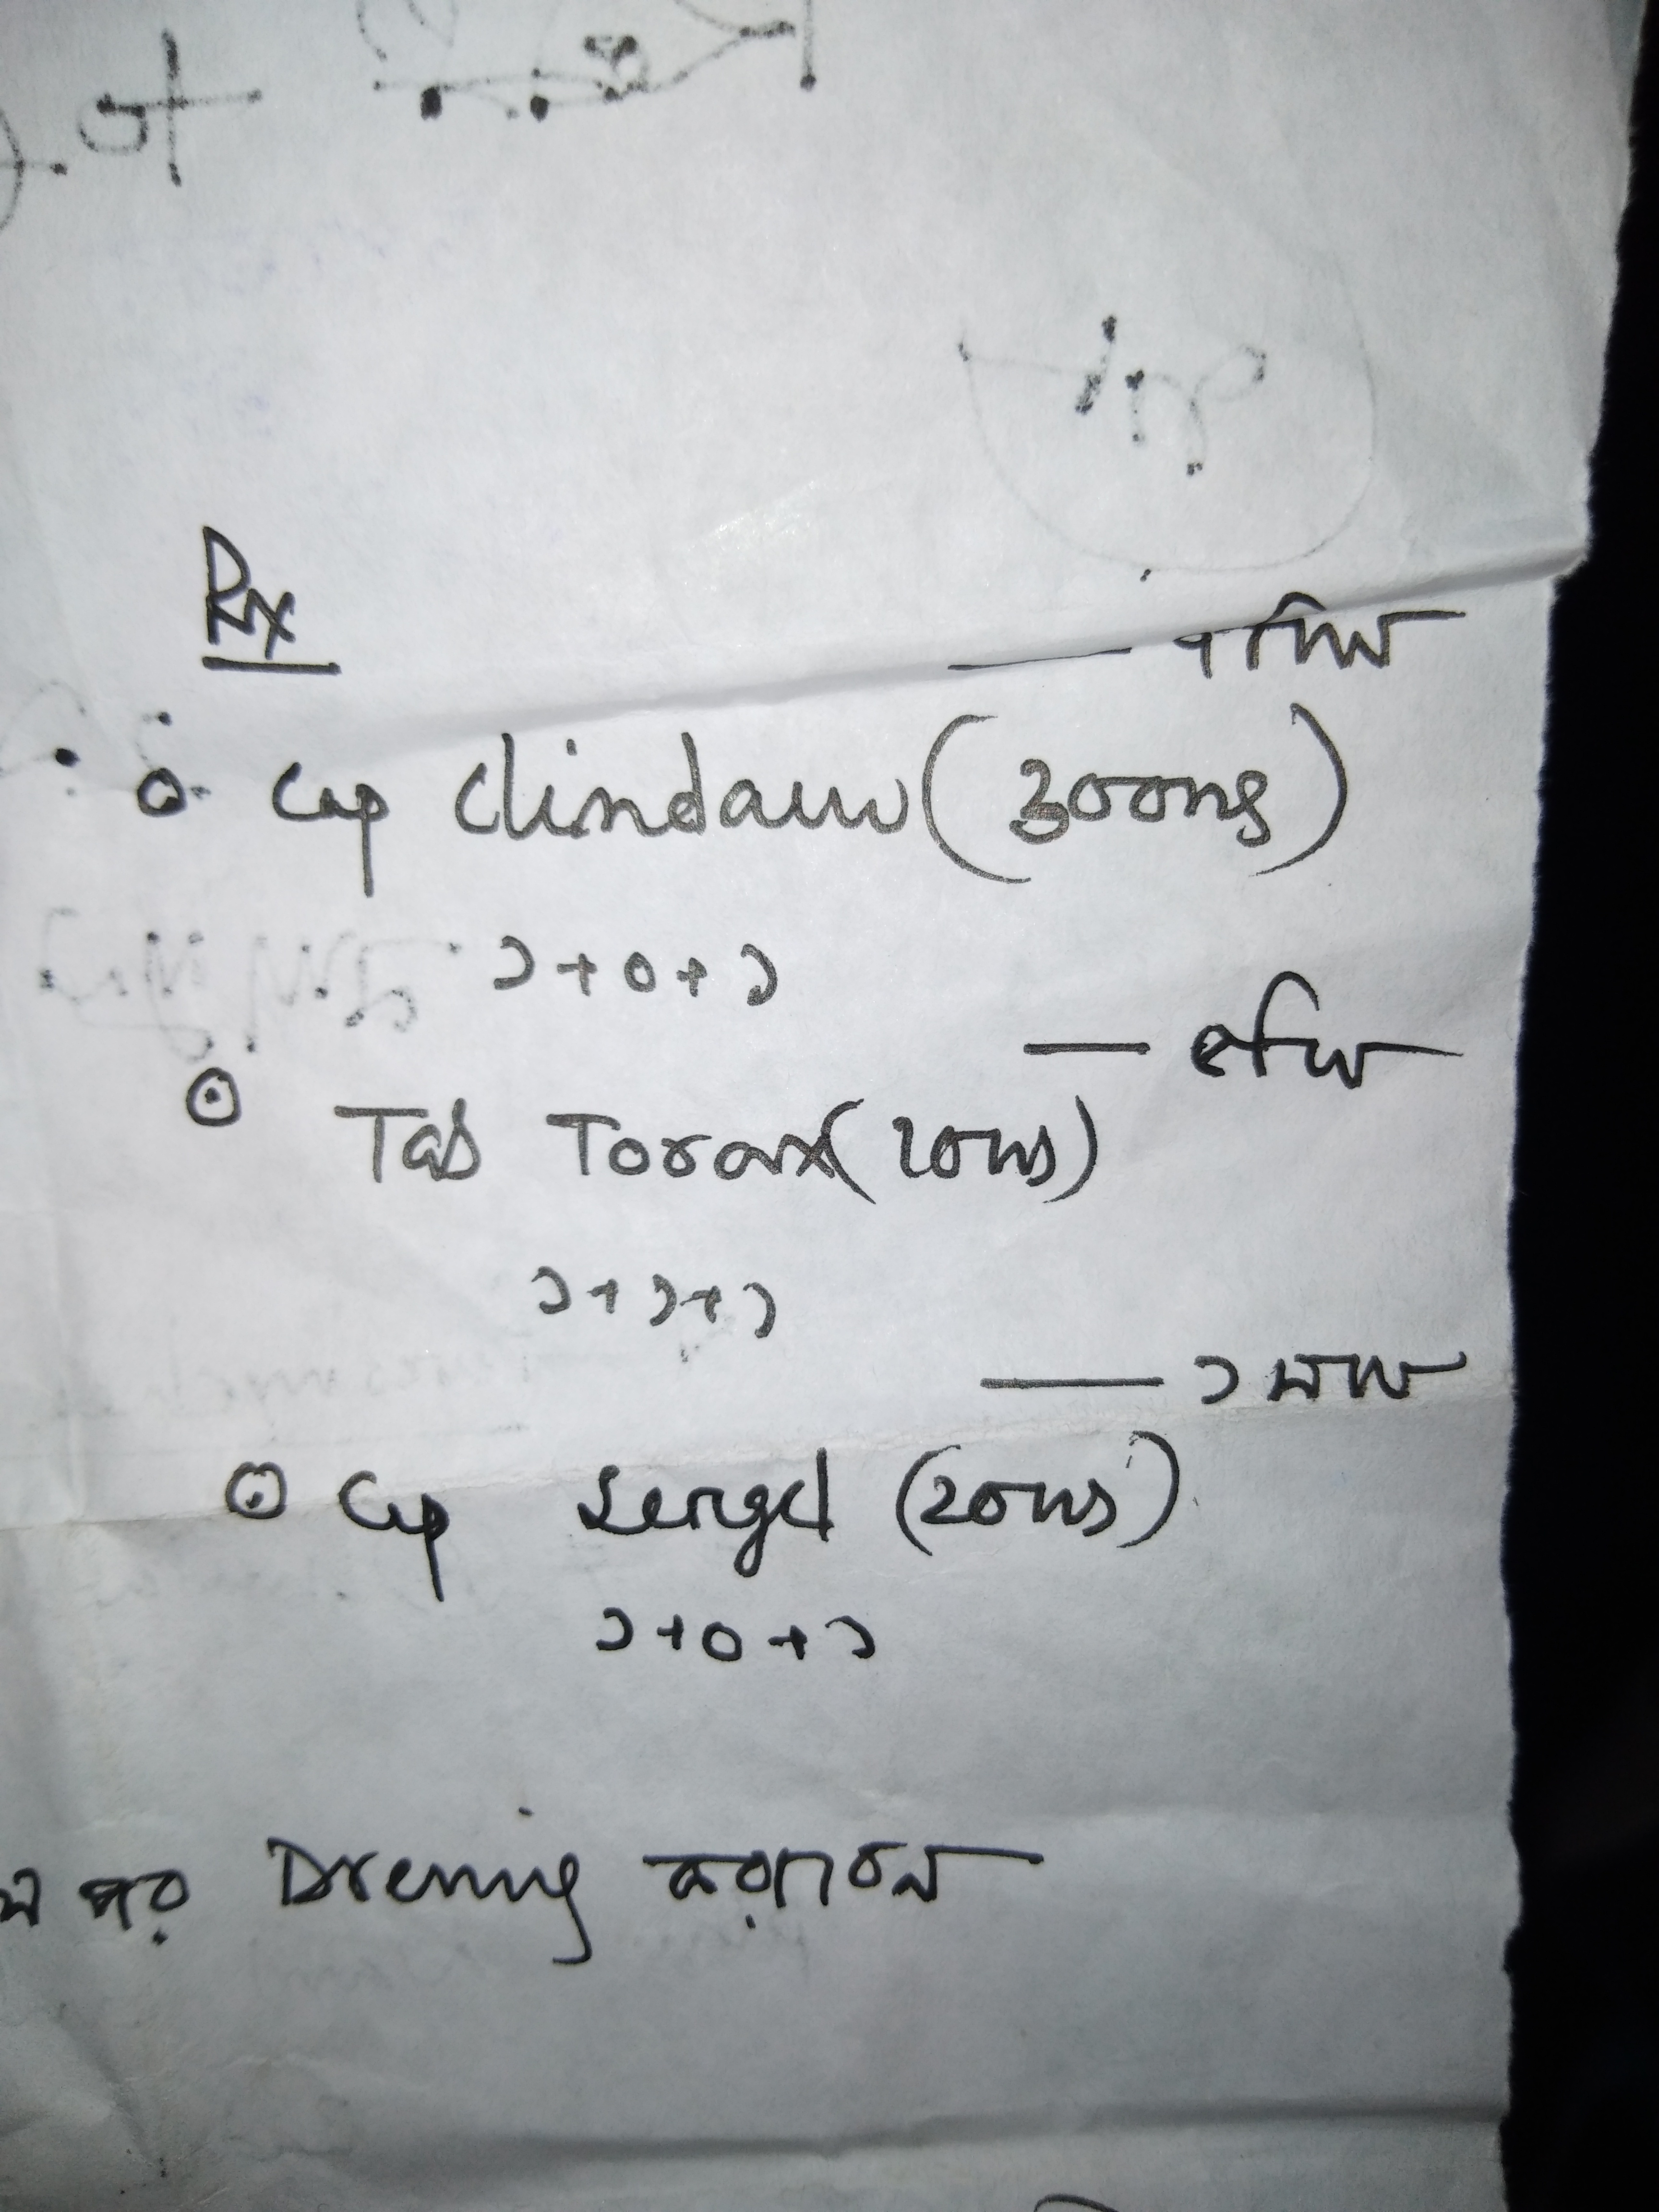 Rx
— ৭ দিন
Cap Clindacin (300mg)
১+০+১
— ৫ দিন
Tab Torax (10mg)
১+১+১
— ১ মাস
Cap Sergel (20mg)
১+০+১
পর Dressing করাবেন